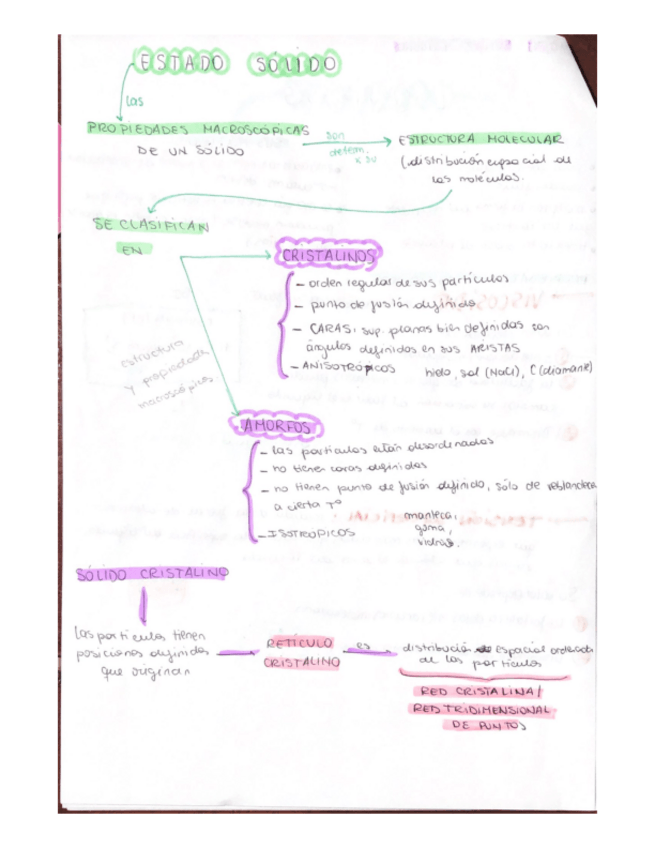 ESTADO SÓLIDO
las
PROPIEDADES MACROSCÓPICAS
DE UN SÓLIDO
son
determ.
x su
ESTRUCTURA MOLECULAR
(distribución espacial de
las moléculas.
SE CLASIFICAN
EN
estructura
y propiedades
macroscópicas
CRISTALINOS
- orden regular de sus partículas
- punto de fusión definido
- CARAS: sup. planas bien definidas con
ángulos definidos en sus ARISTAS
- ANISOTRÓPICOS hielo, sal (NaCl), C (diamante)
AMORFOS
- las partículas están desordenadas
- no tienen caras definidas
- no tienen punto de fusión definido, sólo de reblandece
a cierta Tº
- ISOTRÓPICOS
manteca,
goma,
vidrio.
SÓLIDO CRISTALINO
Las partículas tienen
posiciones definidas
que originan
RETÍCULO
CRISTALINO
es
distribución espacial ordenada
de las partículas
RED CRISTALINA/
RED TRIDIMENSIONAL
DE PUNTOS